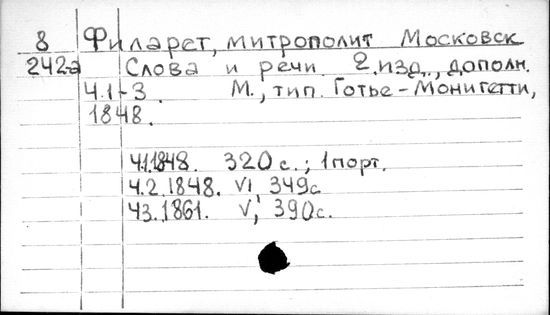 8 Филарет, митрополит Московск
242-а Слова и речи. 2.изд., дополн.
Ч.1-3. М., тип. Готье-Монигетти,
1848.
Ч.1.1848. 320 с.; 1 порт.
Ч.2.1848. VI, 349с
Ч3.1861. V, 390с.